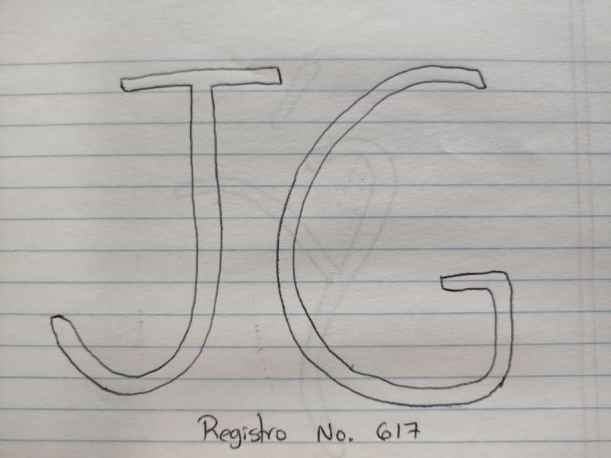 JG
Registro No. 617